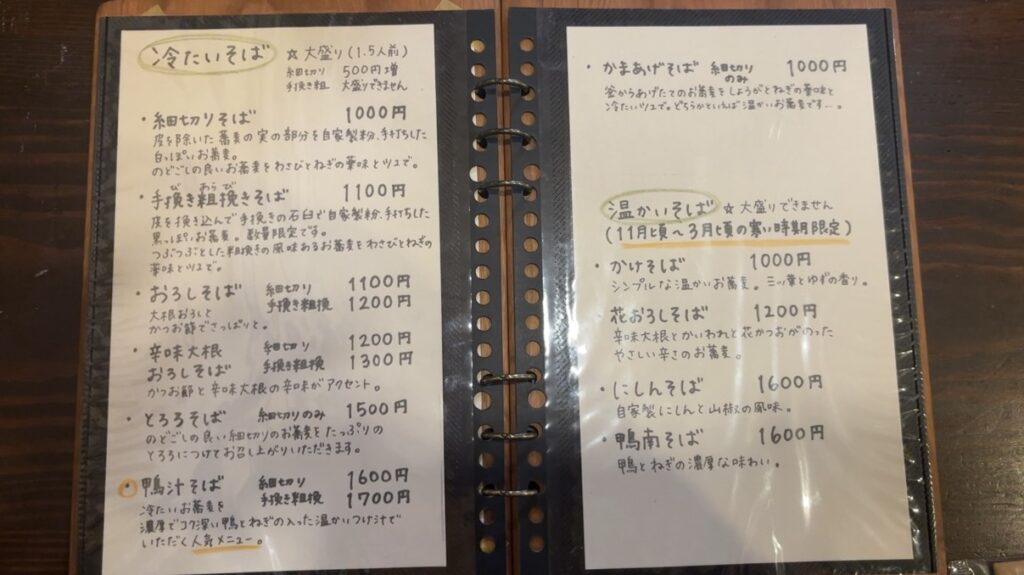 冷たいそば ☆大盛り(1.5人前)
細切り 500円増
手挽き粗 大盛りできません
・細切りそば 1000円
皮を除いた蕎麦の実の部分を自家製粉、手打ちした
白っぽいお蕎麦。
のどごしの良いお蕎麦をわさびとねぎの薬味とツユで。
・手挽き粗挽きそば 1100円
び あらび
皮を挽き込んで手挽きの石臼で自家製粉、手打ちした
黒っぽいお蕎麦。数量限定です。
つぶつぶとした粗挽きの風味あるお蕎麦をわさびとねぎの
薬味とツユで。
・おろしそば 細切り 1100円
手挽き粗挽 1200円
大根おろしと
かつお節でさっぱりと。
・辛味大根 細切り 1200円
おろしそば 手挽き粗挽 1300円
かつお節と辛味大根の辛味がアクセント。
・とろろそば 細切りのみ 1500円
のどごしの良い細切りのお蕎麦をたっぷりの
とろろにつけてお召し上がりいただきます。
・鴨汁そば 細切り 1600円
手挽き粗挽 1700円
冷たいお蕎麦を
濃厚でコク深い鴨とねぎの入った温かいつけ汁で
いただく人気メニュー。
・かまあげそば 細切りのみ 1000円
釜からあげたてのお蕎麦をしょうがとねぎの薬味と
冷たいツユで。どちらかといえば温かいお蕎麦です…。
温かいそば ☆大盛りできません
(11月頃〜3月頃の寒い時期限定)
・かけそば 1000円
シンプルな温かいお蕎麦。三ッ葉とゆずの香り。
・花おろしそば 1200円
辛味大根とかいわれと花かつおがのった
やさしい辛さのお蕎麦。
・にしんそば 1600円
自家製にしんと山椒の風味。
・鴨南そば 1600円
鴨とねぎの濃厚な味わい。